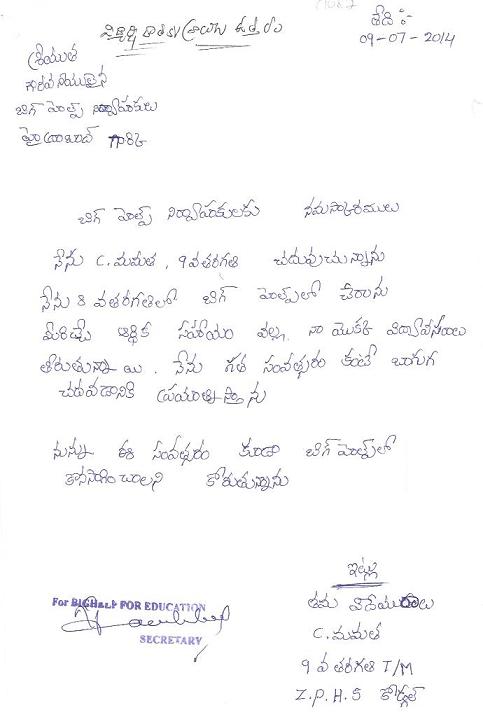 విద్యార్థి రాతకు వ్రాయు ఉత్తరం
తేది :-
09-07-2014
శ్రీయుత
గౌరవనీయులైన
బిగ్ హెల్ప్ నిర్వాహకులు
హైదరాబాద్
బిగ్ హెల్ప్ నిర్వాహకులకు నమస్కారములు
నేను C.మమత, 9వతరగతి చదువుచున్నాను
నేను 8వతరగతిలో బిగ్ హెల్ప్‌లో చేరాను
మీరిచ్చే ఆర్థిక సహాయం వల్ల నా యొక్క విద్యావసరాలు
తీరుతున్నాయి. నేను గత సంవత్సరం కంటే బాగుగ
చదవడానికి ప్రయత్నిస్తాను
నున్ను ఈ సంవత్సరం కూడా బిగ్ హెల్ప్‌లో
కొనసాగించాలని కోరుతున్నాను
ఇట్లు
తమ విధేయురాలు
C.మమత
9వ తరగతి T/M
Z.P.H.S
For BIGHELP FOR EDUCATION
SECRETARY